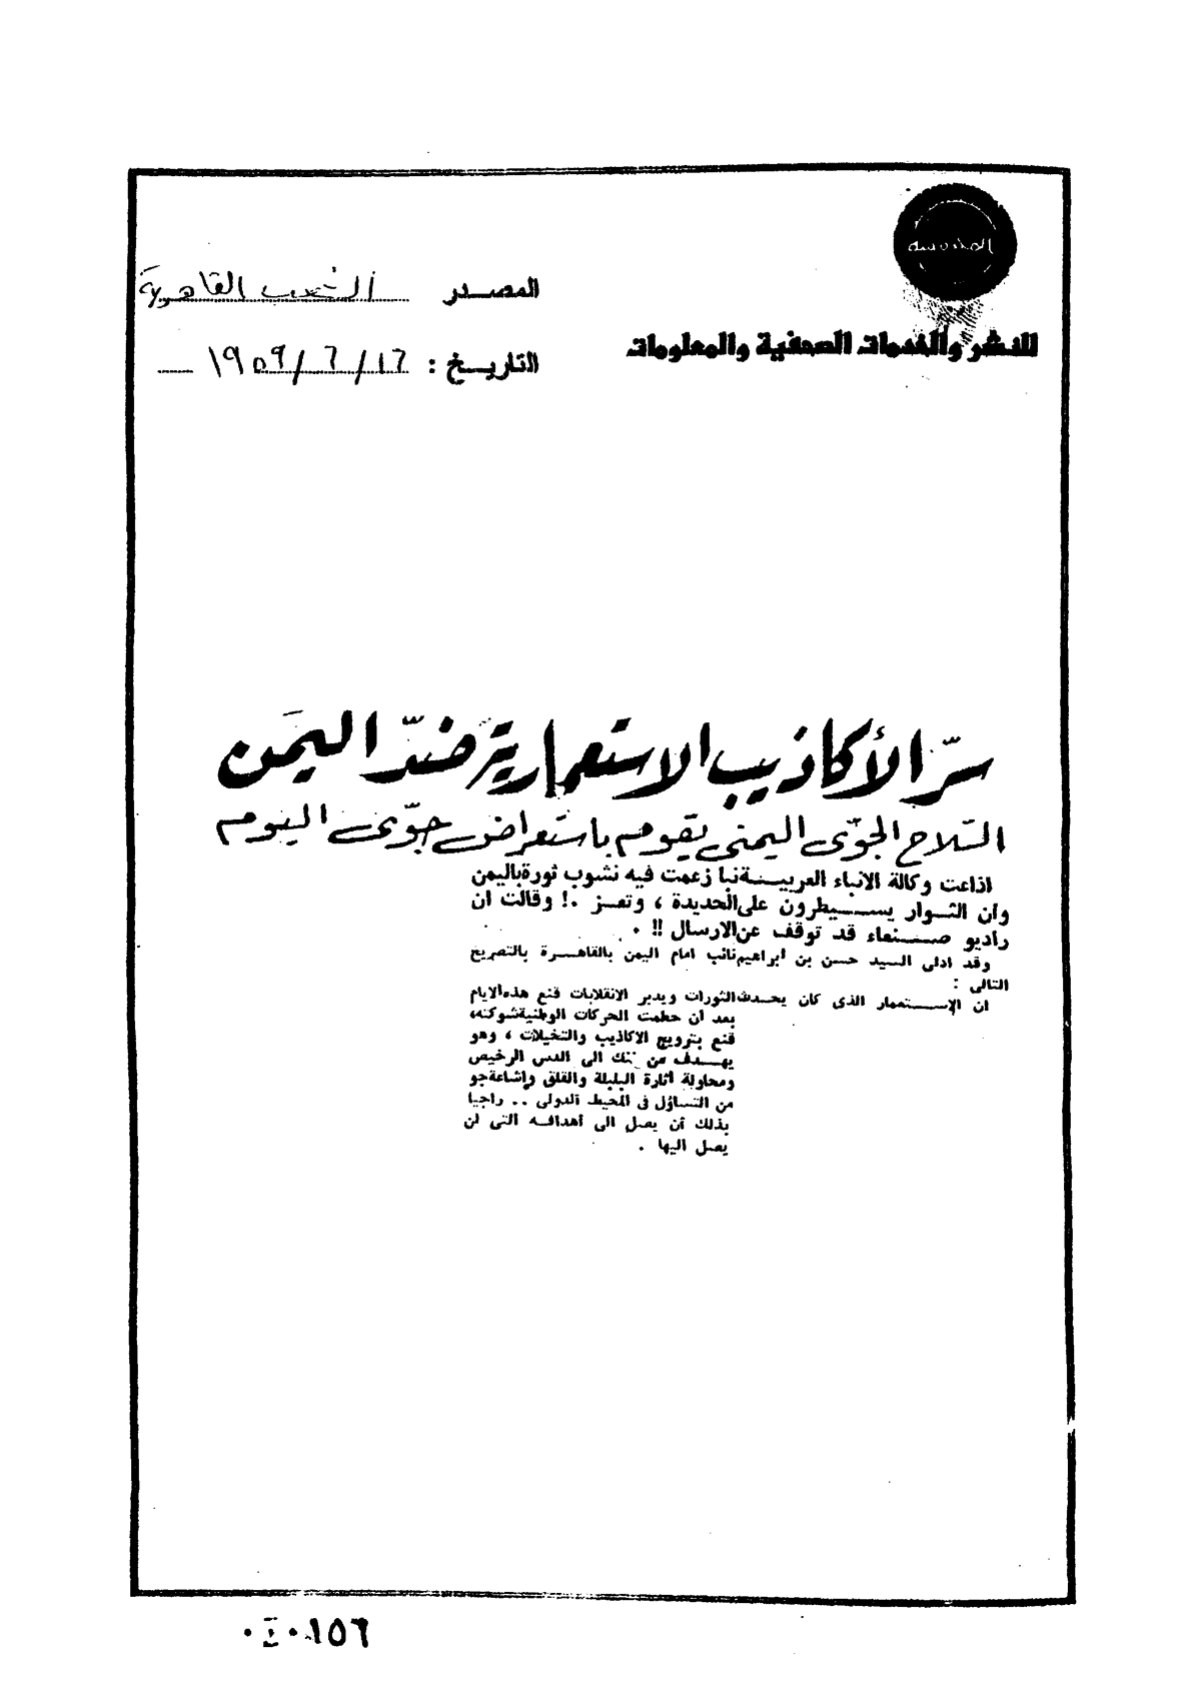 المحروسة
للنشر والخدمات الصحفية والمعلومات
المصدر الشعب القاهرية
التاريخ : ١٦/٦/١٩٥٩
سرّ الأكاذيب الاستعمارية ضدّ اليمن
السّلاح الجوّى اليمنى يقوم باستعراض جوّى اليوم
اذاعت وكالة الانباء العربية نبا زعمت فيه نشوب ثورة باليمن
وأن الثوار يسيطرون على الحديدة ، وتعز .! وقالت ان
راديو صنعاء قد توقف عن الارسال !! .
وقد ادلى السيد حسن بن ابراهيم نائب امام اليمن بالقاهرة بالتصريح
التالى :
ان الاستعمار الذى كان يحدث الثورات ويدبر الانقلابات قنع هذه الايام
بعد أن حطمت الحركات الوطنية شوكته،
قنع بترويج الاكاذيب والتخيلات ، وهو
يهدف من الى الدس الرخيص
ومحاولة اثارة البلبلة والقلق وإشاعة جو
من التساؤل فى المحيط الدولى .. راجيا
بذلك أن يصل الى أهدافه التى لن
يصل اليها .